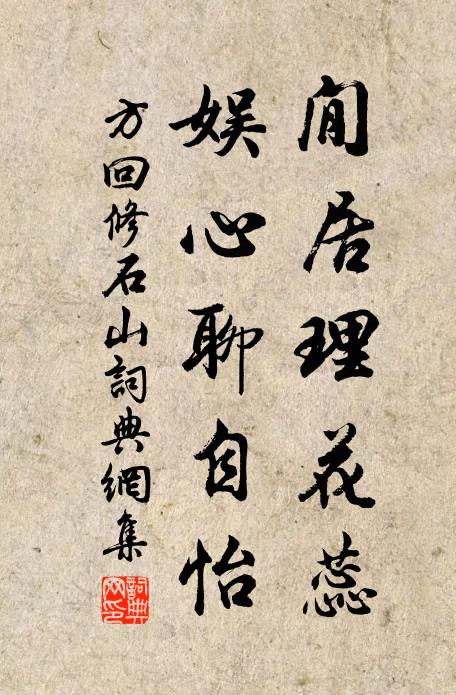 閒居理花蕊
娛心聊自怡
方回修石山詞典網集
詞典网印